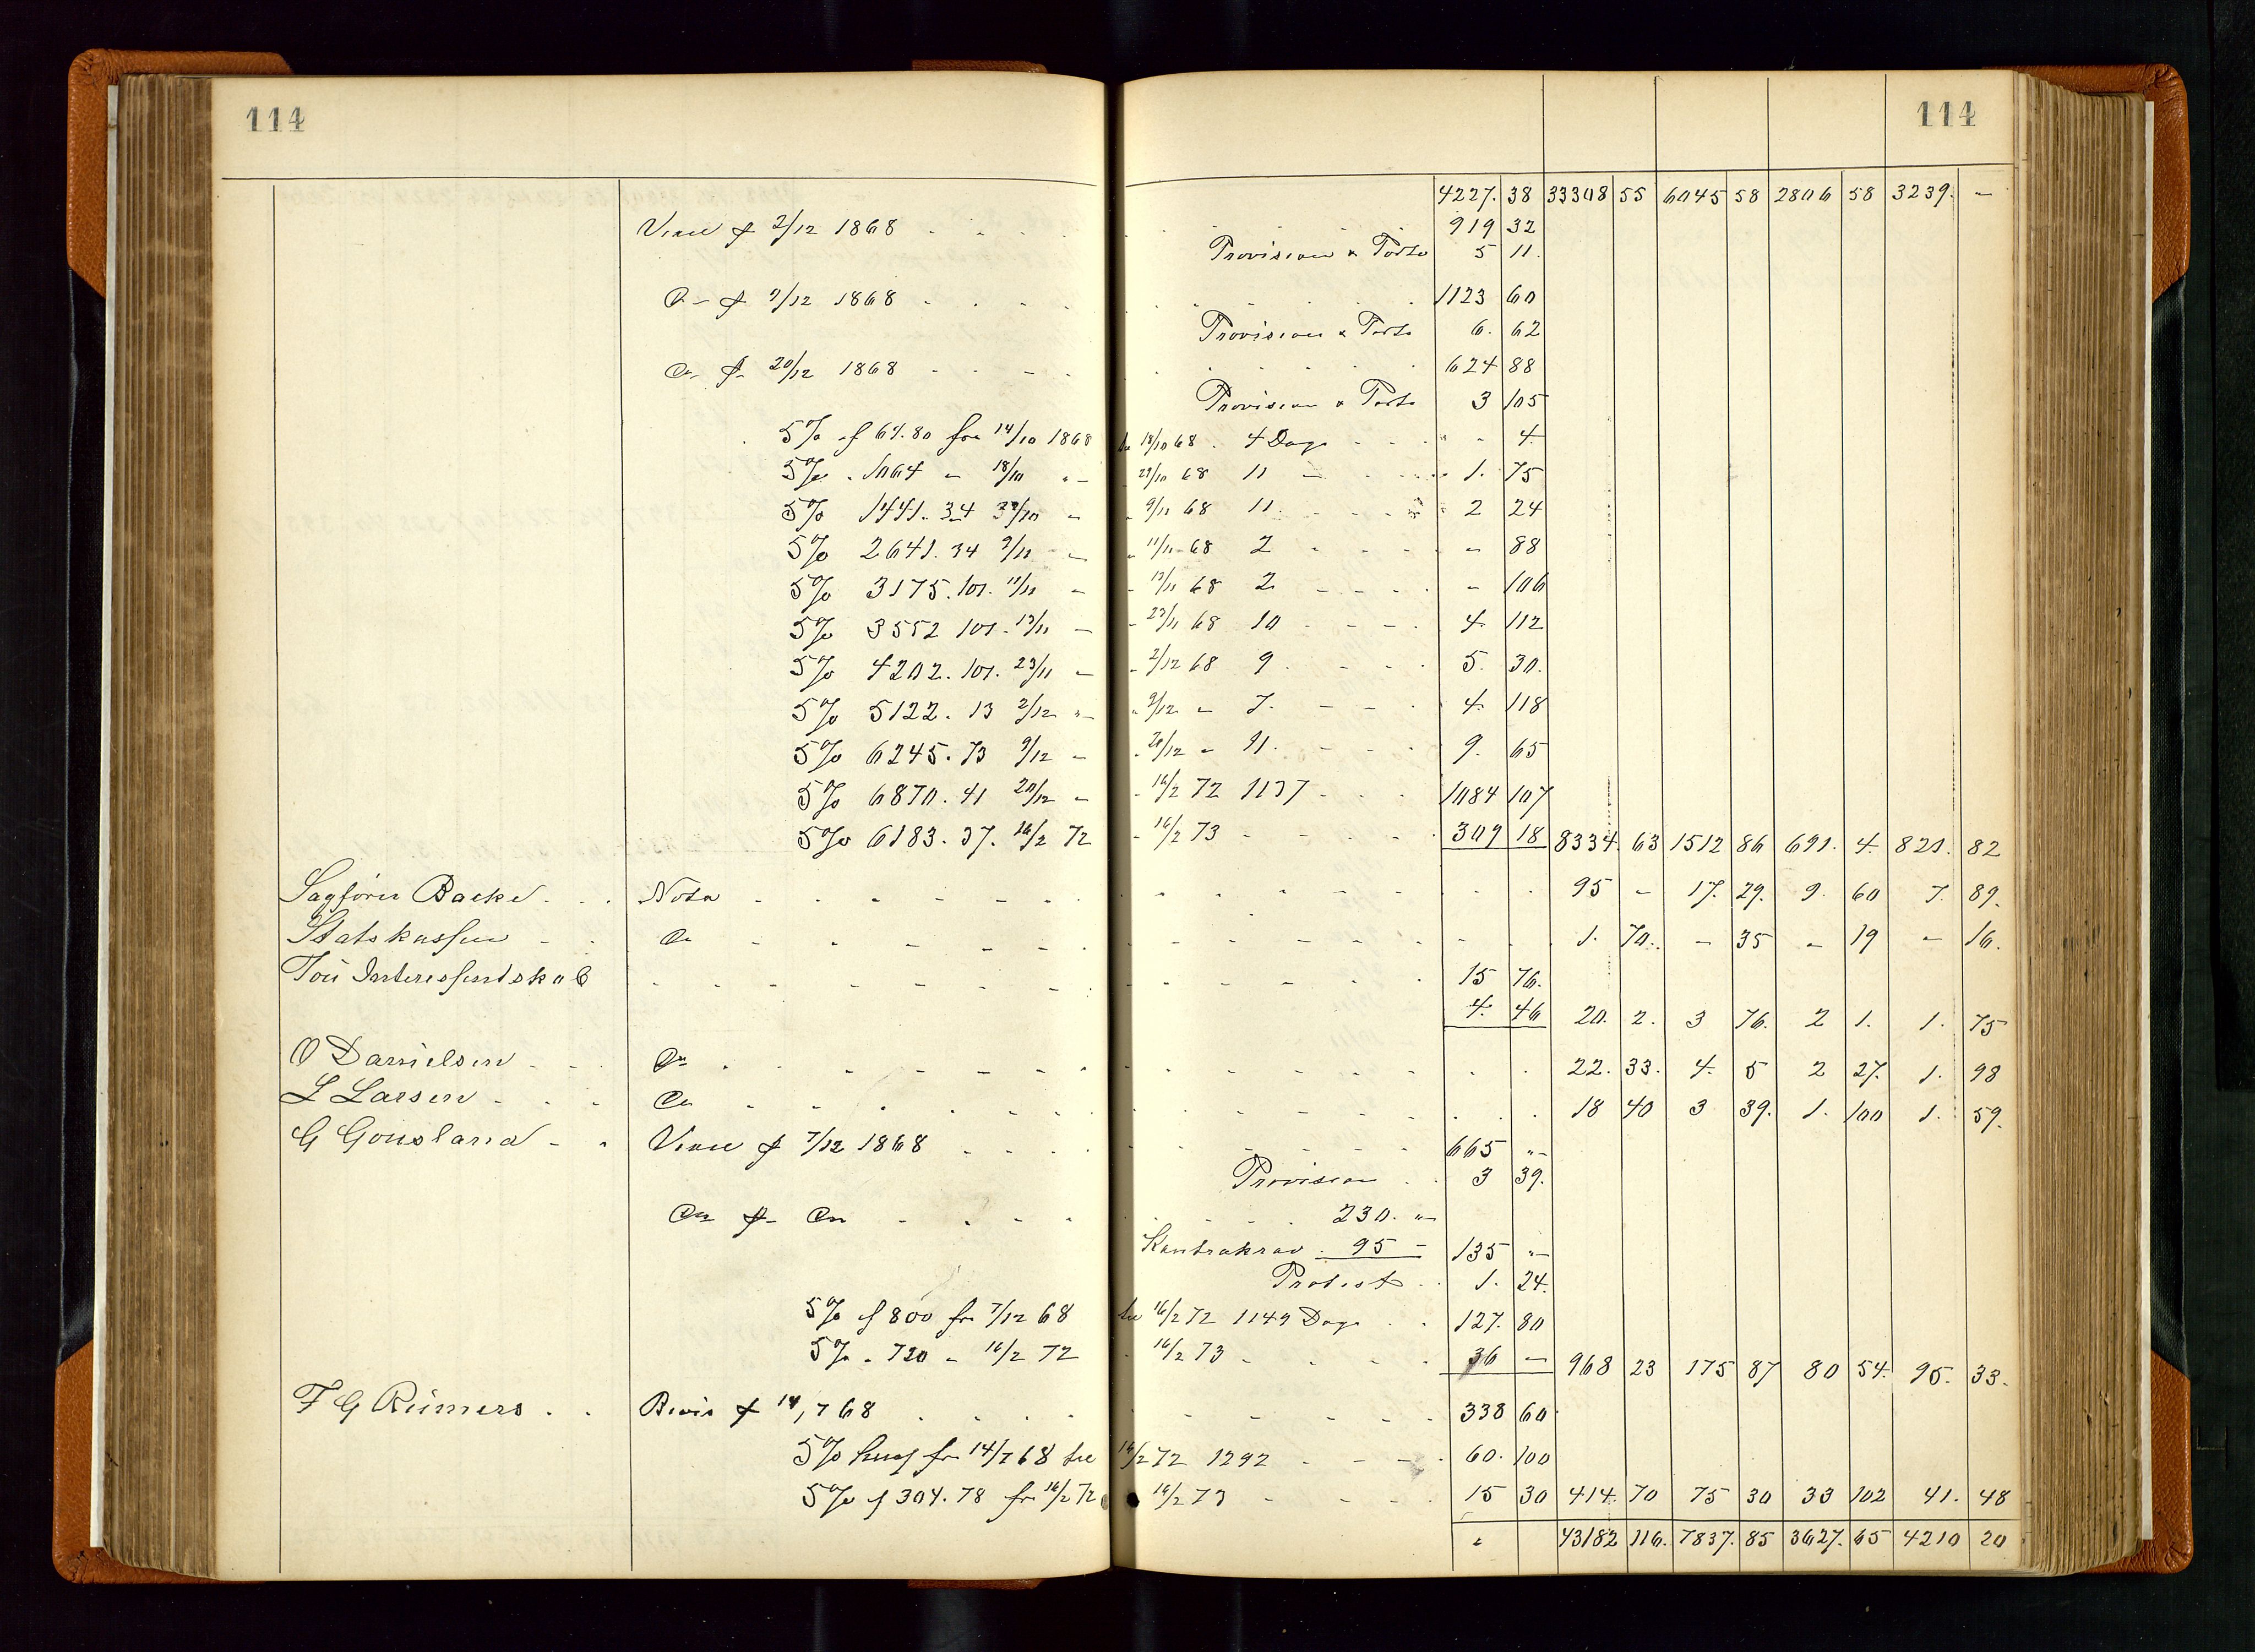 114 114
4227. 38 33308 55 6045 58 2806 58 3239. -
2/12 1868 919 32
Provision & Porto 5 11.
Do - f 9/12 1868 1123 60
Provision & Porto 6. 62
Do - f - 20/12 1868 624 88
Provision & Porto 3 105
5% af 64.80 fra 14/10 1868 18/10 68. 4 Dage - 4
5% . 1064 - 18/10 - 29/10 68 11 1. 75
5% 1441. 34 - 9/11 68 11. 2 24
5% 2641. 34 9/11 - 11/11 68 2 - 88
5% 3175. 101. 11/11 - 13/11 68 2 - 106
5% 3552 101. 13/11 - 23/11 68 10 4. 112
5% 4202. 101. 23/11 - 2/12 68 9. 5. 30.
5% 5122. 13 2/12 - 9/12 - 7. 4. 118
5% 6245. 73 9/12 - 20/12 - 11. 9. 65
5% 6870. 41 20/12 - 16/2 72 1137 1084 107
5% 6183. 37. 16/2 72 - 16/2 73 309 18 8334. 63 1512 86 691. 4. 821. 82
Sagfører Backe Nota 95 - 17. 29. 9. 60 7. 89.
Statskassen Do 1. 70. - 35 - 19 - 16.
Tou Interessentskab 15 76.
4. 46 20. 2. 3 76. 2 1. 1. 75
O Danielsen Do 22. 33. 4. 5 2 27. 1. 98
L Larsen Do 18 40 3 39. 1. 100 1. 59.
G Gousland 7/12 1868 665 -
Provision 3 39.
Do f - Do 230. -
Kontrakrav. 95 - 135 -
Protest 1. 24.
5% af 800 fra 7/12 68 16/2 72 1149 Dage 127. 80
5% . 720 - 16/2 72 . 16/2 73 36 - 968 23 175 87 80 54. 95. 33.
F G Reimers Bevis f 14/7 68 338 60
5% fra 14/7 68 16/2 72 1292 60. 100
5% af 304. 78 fra 16/2 72 16/2 73 15 30 414. 70 75 30 33 102 41. 48
43182 116. 7837. 85 3627. 65 4210 20